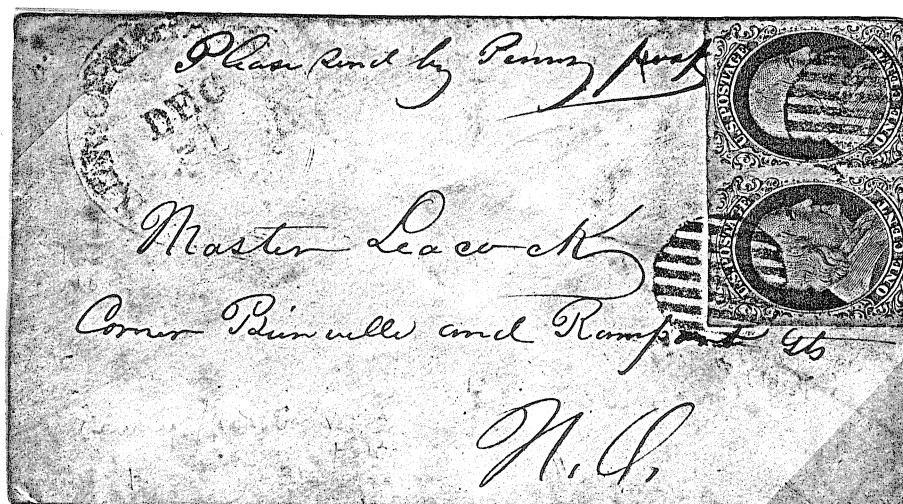 Please send by Penny post
NEW ORLEANS
DEC
21
U.S. POSTAGE
ONE CENT
U.S. POSTAGE
ONE CENT
Master Leacock
Corner Bienville and Rampart Sts
N. O.